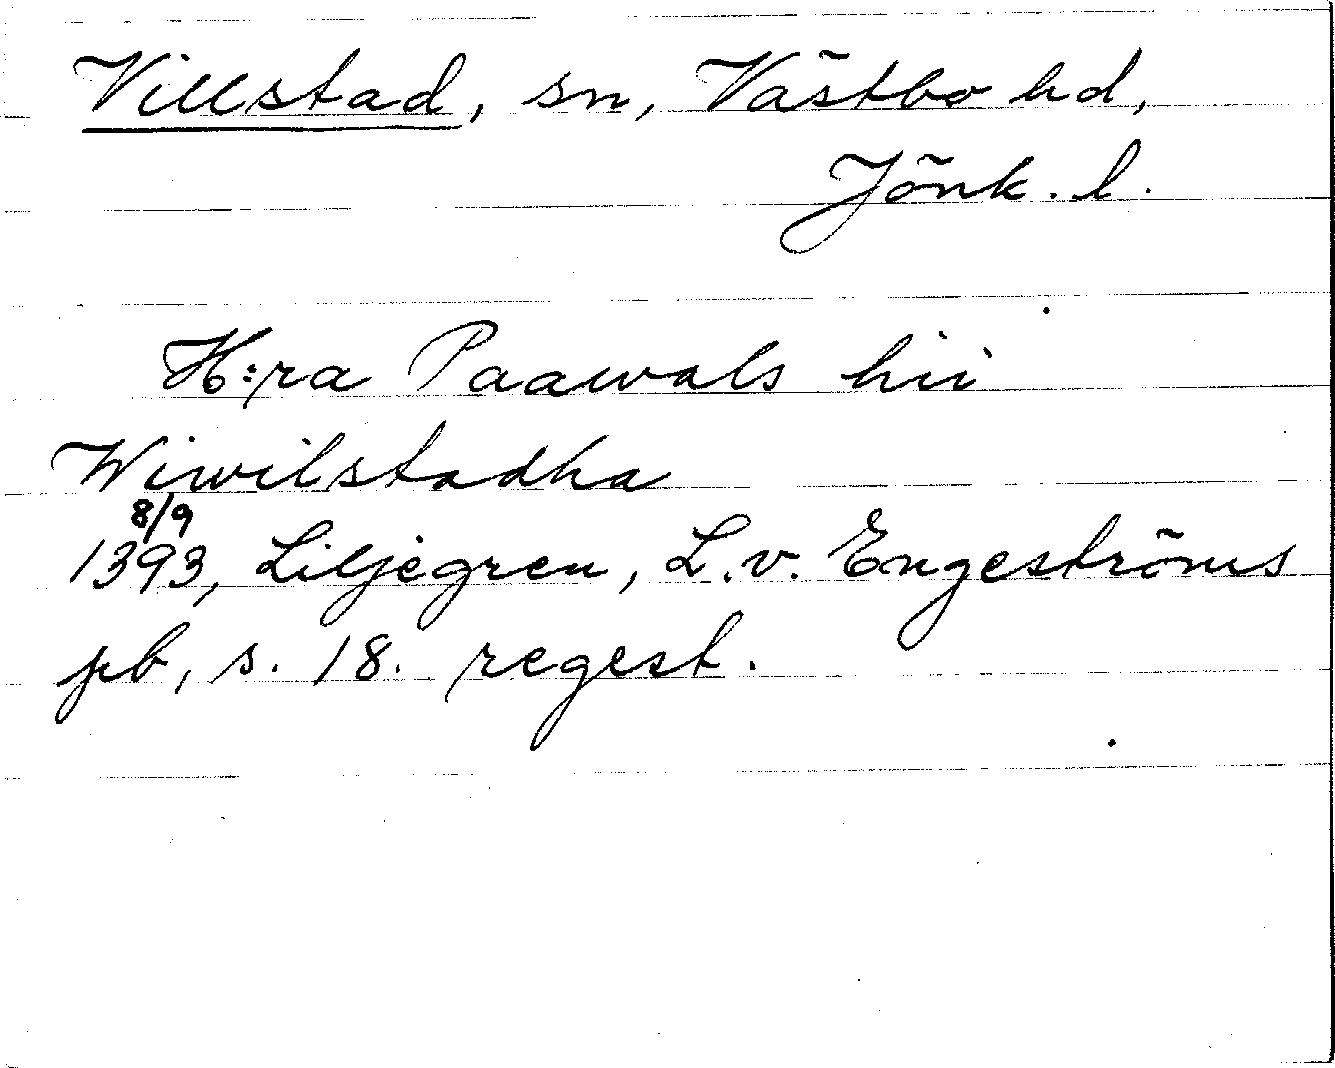 Villstad, sn, Västbo hd,
Jönk. l.
H:ra Paawals hii
Wiwilstadha
8/9
1393, Liljegren, L.v. Engeströms
pb, s. 18. regest.